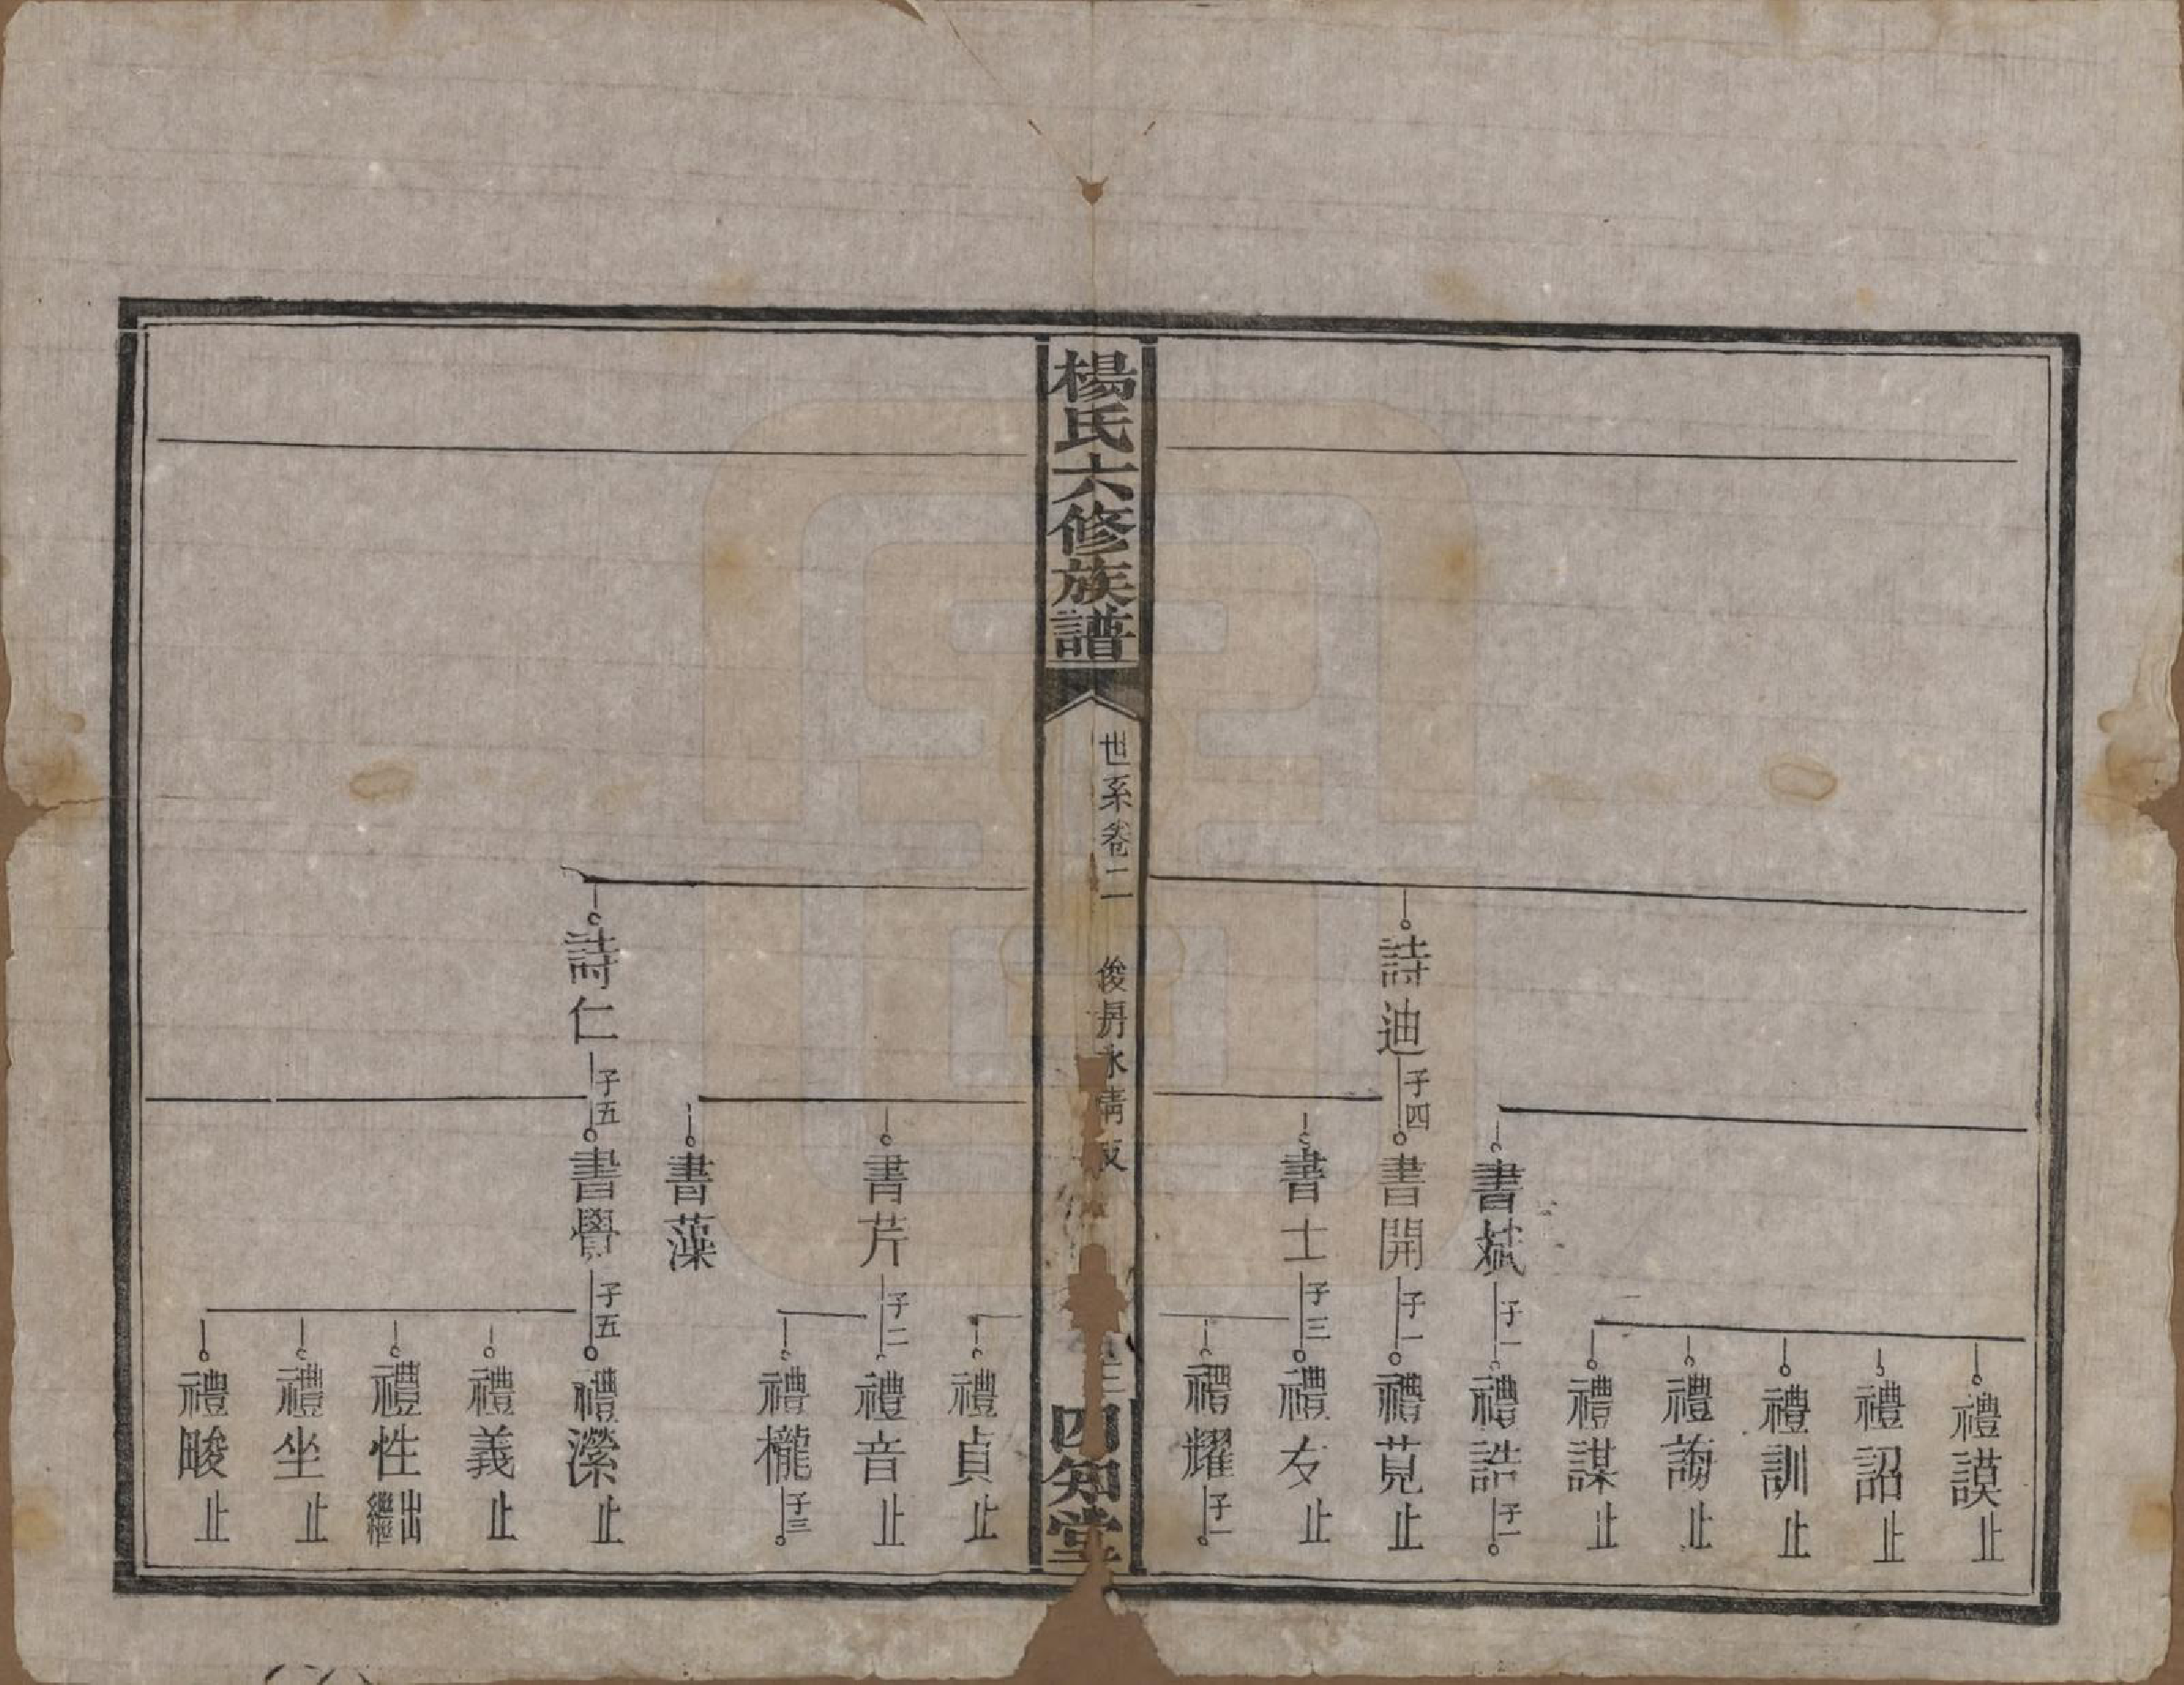 禮謨止
禮詔止
禮訓止
禮謝止
禮謀止
書斌子一禮誥子一
詩迪子四書開子一禮莧止
書士子三禮友止
禮耀子一
楊氏六修族譜
世系卷二 俊丹永清
四知堂
禮貞止
書芹子二禮音止
禮櫳子三
書藻
詩仁子五書學子五禮瀠止
禮義止
禮性出繼樞
禮坐止
禮畯止